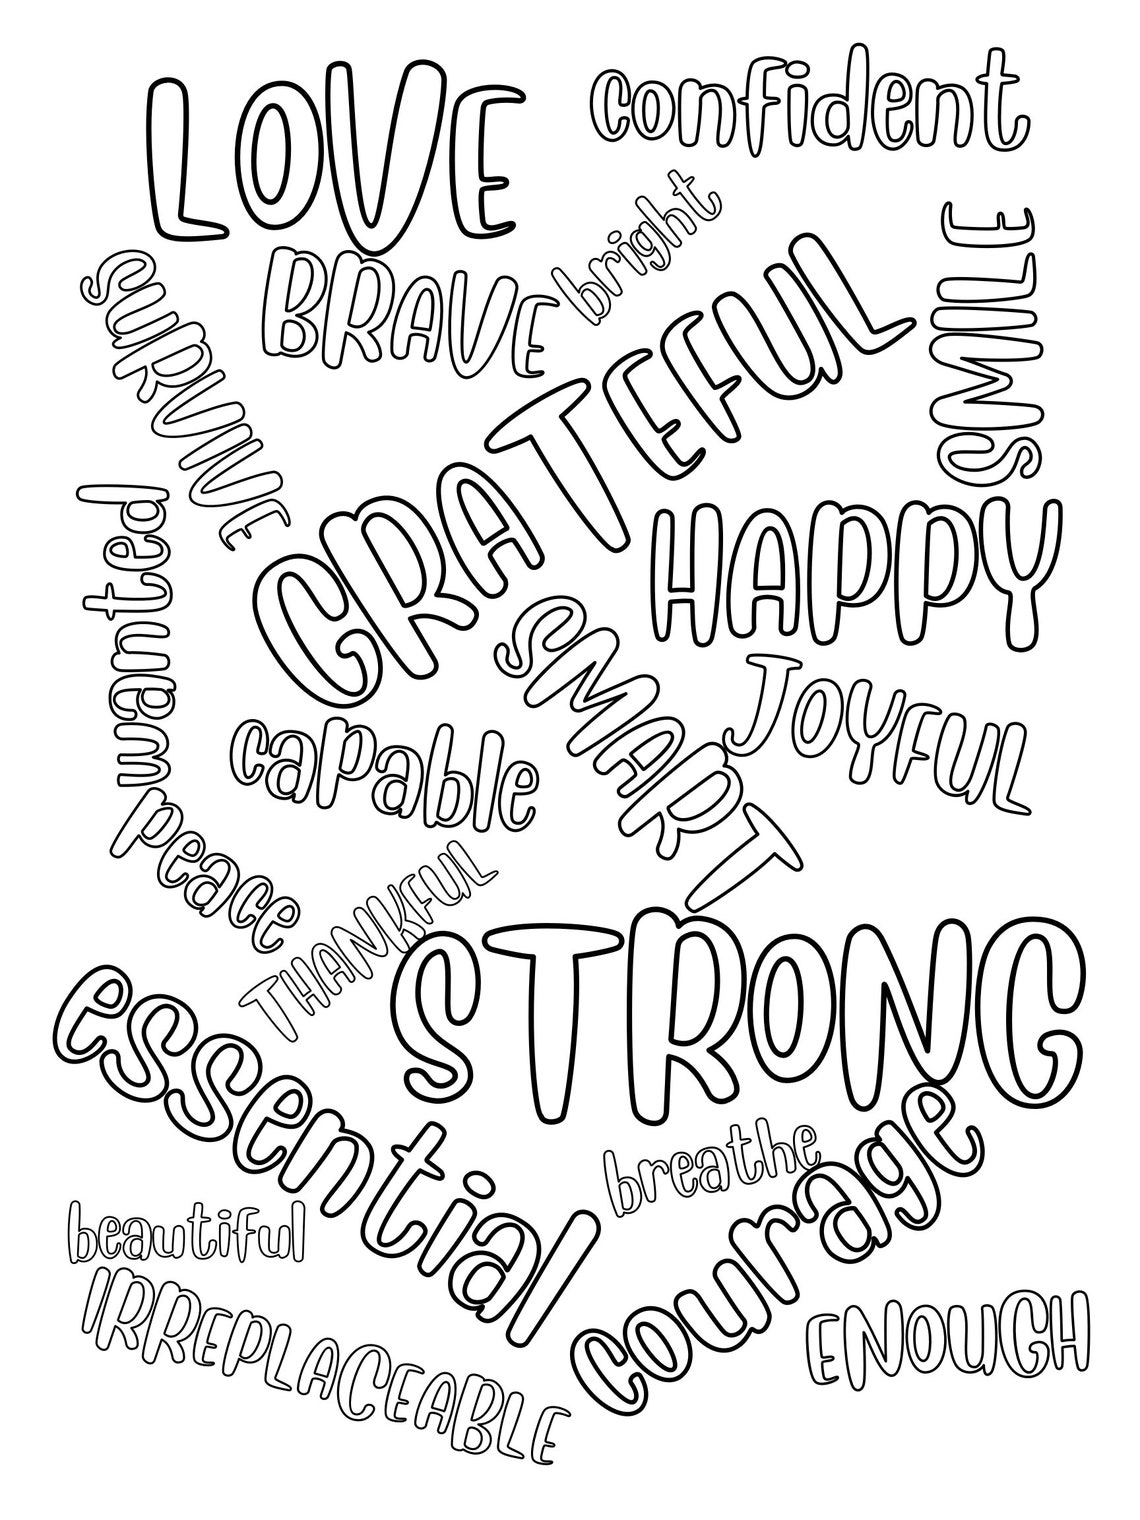 LOVE
confident
bright
BRAVE
SURVIVE
SMILE
GRATEFUL
HAPPY
wanted
SMART
JOYFUL
capable
peace
THANKFUL
STRONG
essential
breathe
courage
beautiful
IRREPLACEABLE
ENOUGH